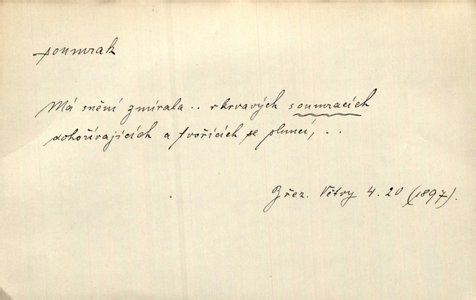 soumrak
Má snění zmírala.. v krvavých soumracích
dohořívajících a tvořících se sluncí,..
Břez. Větry 4. 20 (1897).